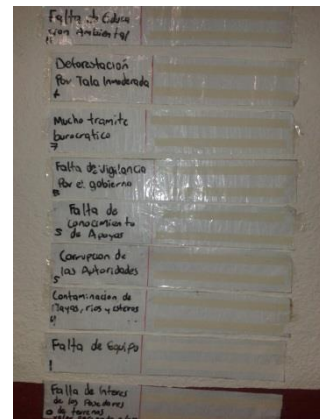 Falta de Educa
cion Ambiental
11
Deforestación
Por Tala Inmoderada
Mucho tramite
burocratico
7
Falta de Vigilancia
Por el gobierno
Falta de
Conocimiento
5 de Apoyos
Corrupcion de
las Autoridades
5
Contaminacion de
Playas, rios y esteros
Falta de Equipo
1
Falla de Interes
de los Poseedores
o de terrenos